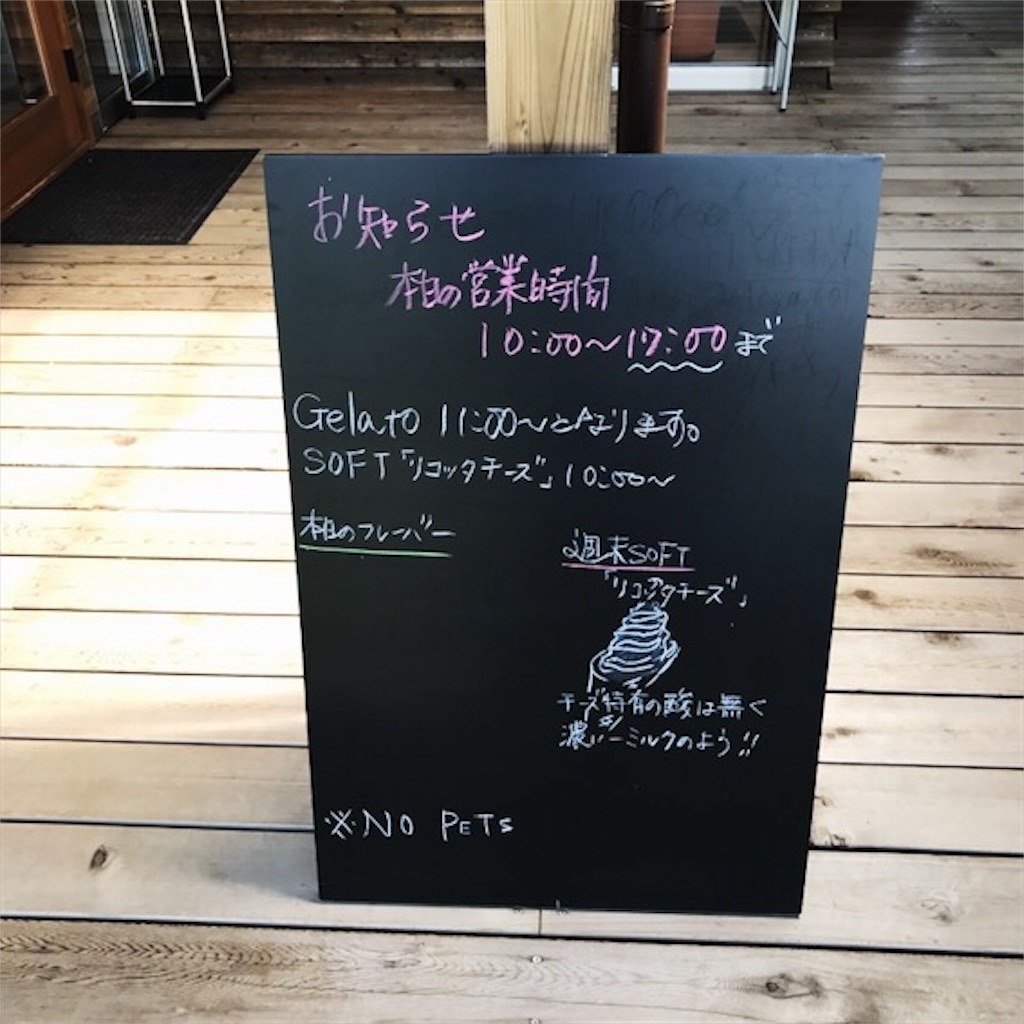 お知らせ
本日の営業時間
10:00〜17:00まで
Gelato 11:00〜となります。
SOFT「リコッタチーズ」10:00〜
本日のフレーバー
週末SOFT
「リコッタチーズ」
チーズ特有の酸は無く
濃いーミルクのよう!!
※NO PETS